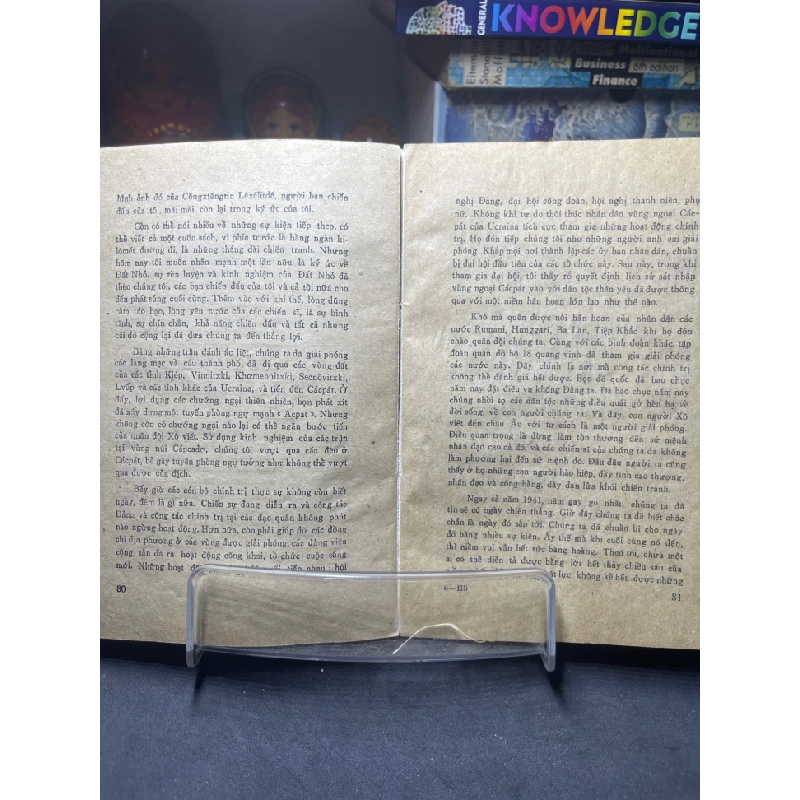 GENERAL KNOWLEDGE
Multinational
Business 6th edition
Finance
Eiteman
Stonehill
Moffett
Hình ảnh đó của Côngxtăngtin Lêxêlitdê, người bạn chiến
đấu của tôi, mãi mãi còn lại trong ký ức của tôi.
Còn có thể nói nhiều về những sự kiện tiếp theo, có
thể viết cả một cuốn sách, vì phía trước là hàng ngàn ki-
lômét đường đi, là những tháng dài chiến tranh. Nhưng
hôm nay tôi muốn nhấn mạnh một lần nữa là ký ức về
Đất Nhỏ, sự rèn luyện và kinh nghiệm của Đất Nhỏ đã
theo chúng tôi, các bạn chiến đấu của tôi và cả tôi nữa cho
đến phát súng cuối cùng. Thêm vào với khí thế, lòng dũng
cảm táo bạo, lòng yêu nước của các chiến sĩ, là sự bình
tĩnh, sự chín chắn, khả năng chiến đấu và tất cả những
cái đó cộng lại đã đưa chúng ta đến thắng lợi.
Bằng những trận đánh ác liệt, chúng ta đã giải phóng
các làng mạc và các thành phố, đã đi qua các vùng đất
của các tỉnh Kiép, Vinnítxki, Khơmennítxki, Secnôvítxki,
Lvốp và các tỉnh khác của Ucraina, và tiến đến Cácpát. Ở
đấy, lợi dụng các chướng ngại thiên nhiên, bọn phát xít
đã xây dựng một tuyến phòng ngự mạnh « Acpat ». Nhưng
không còn có chướng ngại nào lại có thể ngăn bước tiến
của quân đội Xô viết. Sử dụng kinh nghiệm của các trận
tại vùng núi Cápcadơ, chúng tôi vượt qua các đèo ở
Cácpát, bẻ gãy tuyến phòng ngự tưởng như không thể vượt
qua được của địch.
Bấy giờ các cán bộ chính trị thực sự không còn biết
ngày, đêm là gì nữa. Chiến sự đang diễn ra và công tác
Đảng và công tác chính trị tại các đạo quân không phút
nào ngừng hoạt động. Hơn nữa, còn phải giúp đỡ các đồng
chí địa phương ở các vùng được giải phóng, các đảng viên
cộng sản đã ra hoạt động công khai, tổ chức cuộc sống
mới. Những hoạt động tiếp nhau: hội
80
nghị Đảng, đại hội công đoàn, hội nghị thanh niên, phụ
nữ. Không khí tự do thôi thúc nhân dân vùng ngoại Các-
pát của Ucraina tích cực tham gia những hoạt động chính
trị. Họ đón tiếp chúng tôi như những người anh em giải
phóng. Khắp mọi nơi thành lập các ủy ban nhân dân, chuẩn
bị đại hội đầu tiên của các tổ chức này. Sau này, trong khi
tham gia đại hội, tôi thấy rõ quyết định lịch sử sát nhập
vùng ngoại Cácpát vào với dân tộc thân yêu đã được thông
qua với một niềm hân hoan lớn lao như thế nào.
Khó mà quên được nỗi hân hoan của nhân dân các
nước Rumani, Hunggari, Ba Lan, Tiệp Khắc khi họ đón
chào quân đội chúng ta. Cùng với các binh đoàn khác, tập
đoàn quân đỏ hồ 18 quang vinh đã tham gia giải phóng
các nước này. Đây chính là nơi mà công tác chính trị
không thể đánh giá hết được. Bọn đế quốc đã bao chục
năm nay đặt điều vu khống Đảng ta. Đã bao chục năm nay
chúng nhồi sọ các dân tộc những điều quái gở hèn hạ về
đời sống, về con người chúng ta. Và đây, con người Xô
viết đến châu Âu với tư cách là một người giải phóng.
Điều quan trọng là đừng làm tổn thương đến sứ mệnh
nhân đạo cao cả đó, và các chiến sĩ của chúng ta đã không
làm phương hại đến sứ mệnh đó. Đâu đâu người ta cũng
thấy ở họ những người hào hiệp, đầy tình cao thượng,
nhân đạo và công bằng, dày dạn lửa khói chiến tranh.
Ngay cả năm 1941, năm gay go nhất, chúng ta đã
tin sẽ có ngày chiến thắng. Giờ đây chúng ta đã biết chắc
chắn là ngày đó sắp tới. Chúng ta đã chuẩn bị cho ngày
đó hàng nhiều sự kiện. Ấy thế mà khi cuối cùng nó đến,
thì niềm vui vẫn hết sức bàng hoàng. Theo tôi, chưa một
ai có thể diễn tả được bằng lời hết thảy chiều sâu của
lực, không kể hết được những
6—H5
81